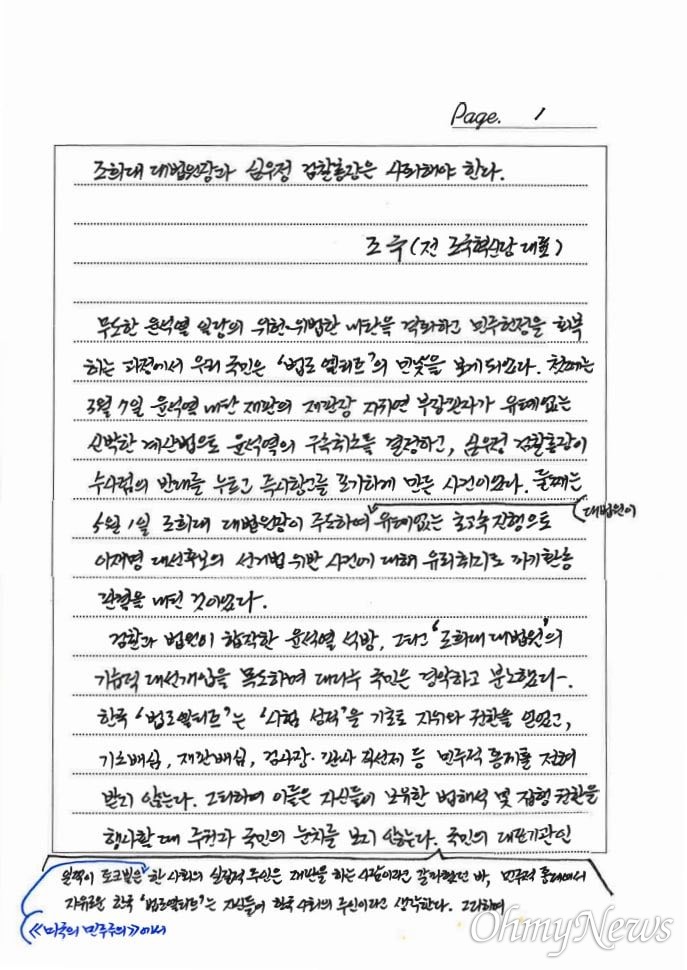 Page. 1
조희대 대법원장과 심우정 검찰총장은 사퇴해야 한다.
조 국 (전 조국혁신당 대표)
무도한 윤석열 일당의 위헌·위법한 내란을 격퇴하고 민주헌정을 회복
하는 과정에서 우리 국민은 '법조엘리트'의 민낯을 보게 되었다. 첫째는
3월 7일 윤석열 내란 재판의 재판장 지귀연 부장판사가 유례없는
신박한 계산법으로 윤석열의 구속취소를 결정하고, 심우정 검찰총장이
수사팀의 반대를 누르고 즉시항고를 포기하게 만든 사건이었다. 둘째는
5월 1일 조희대 대법원장이 주도하여 유례없는 초고속 진행으로
대법원이
이재명 대선후보의 선거법 위반 사건에 대해 유죄취지로 파기환송
판결을 내린 것이었다.
검찰과 법원이 합작한 윤석열 석방, 그리고 '조희대 대법원'의
기습적 대선개입을 목도하며 대다수 국민은 경악하고 분노했다.
한국 '법조엘리트'는 '시험 성적'을 기초로 지위와 권한을 얻었고,
기소배심, 재판배심, 검사장·판사 직선제 등 민주적 통제를 전혀
받지 않는다. 그리하여 이들은 자신들이 보유한 법해석 및 집행 권한을
행사할 때 주권자 국민의 눈치를 보지 않는다. 국민의 대표기관인
일찍이 토크빌은 한 사회의 실질적 주인은 재판을 하는 사람이라고 갈파했던 바, 민주적 통제에서
자유로운 한국 '법조엘리트'는 자신들이 한국 사회의 주인이라고 생각한다. 그리하여
《미국의 민주주의》에서
OhmyNews